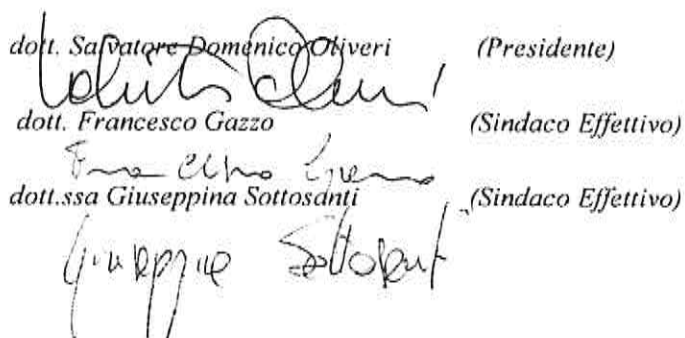 dott. Salvatore Domenico Oliveri (Presidente)
dott. Francesco Gazzo (Sindaco Effettivo)
dott.ssa Giuseppina Sottosanti (Sindaco Effettivo)
Giuseppina Sottosanti